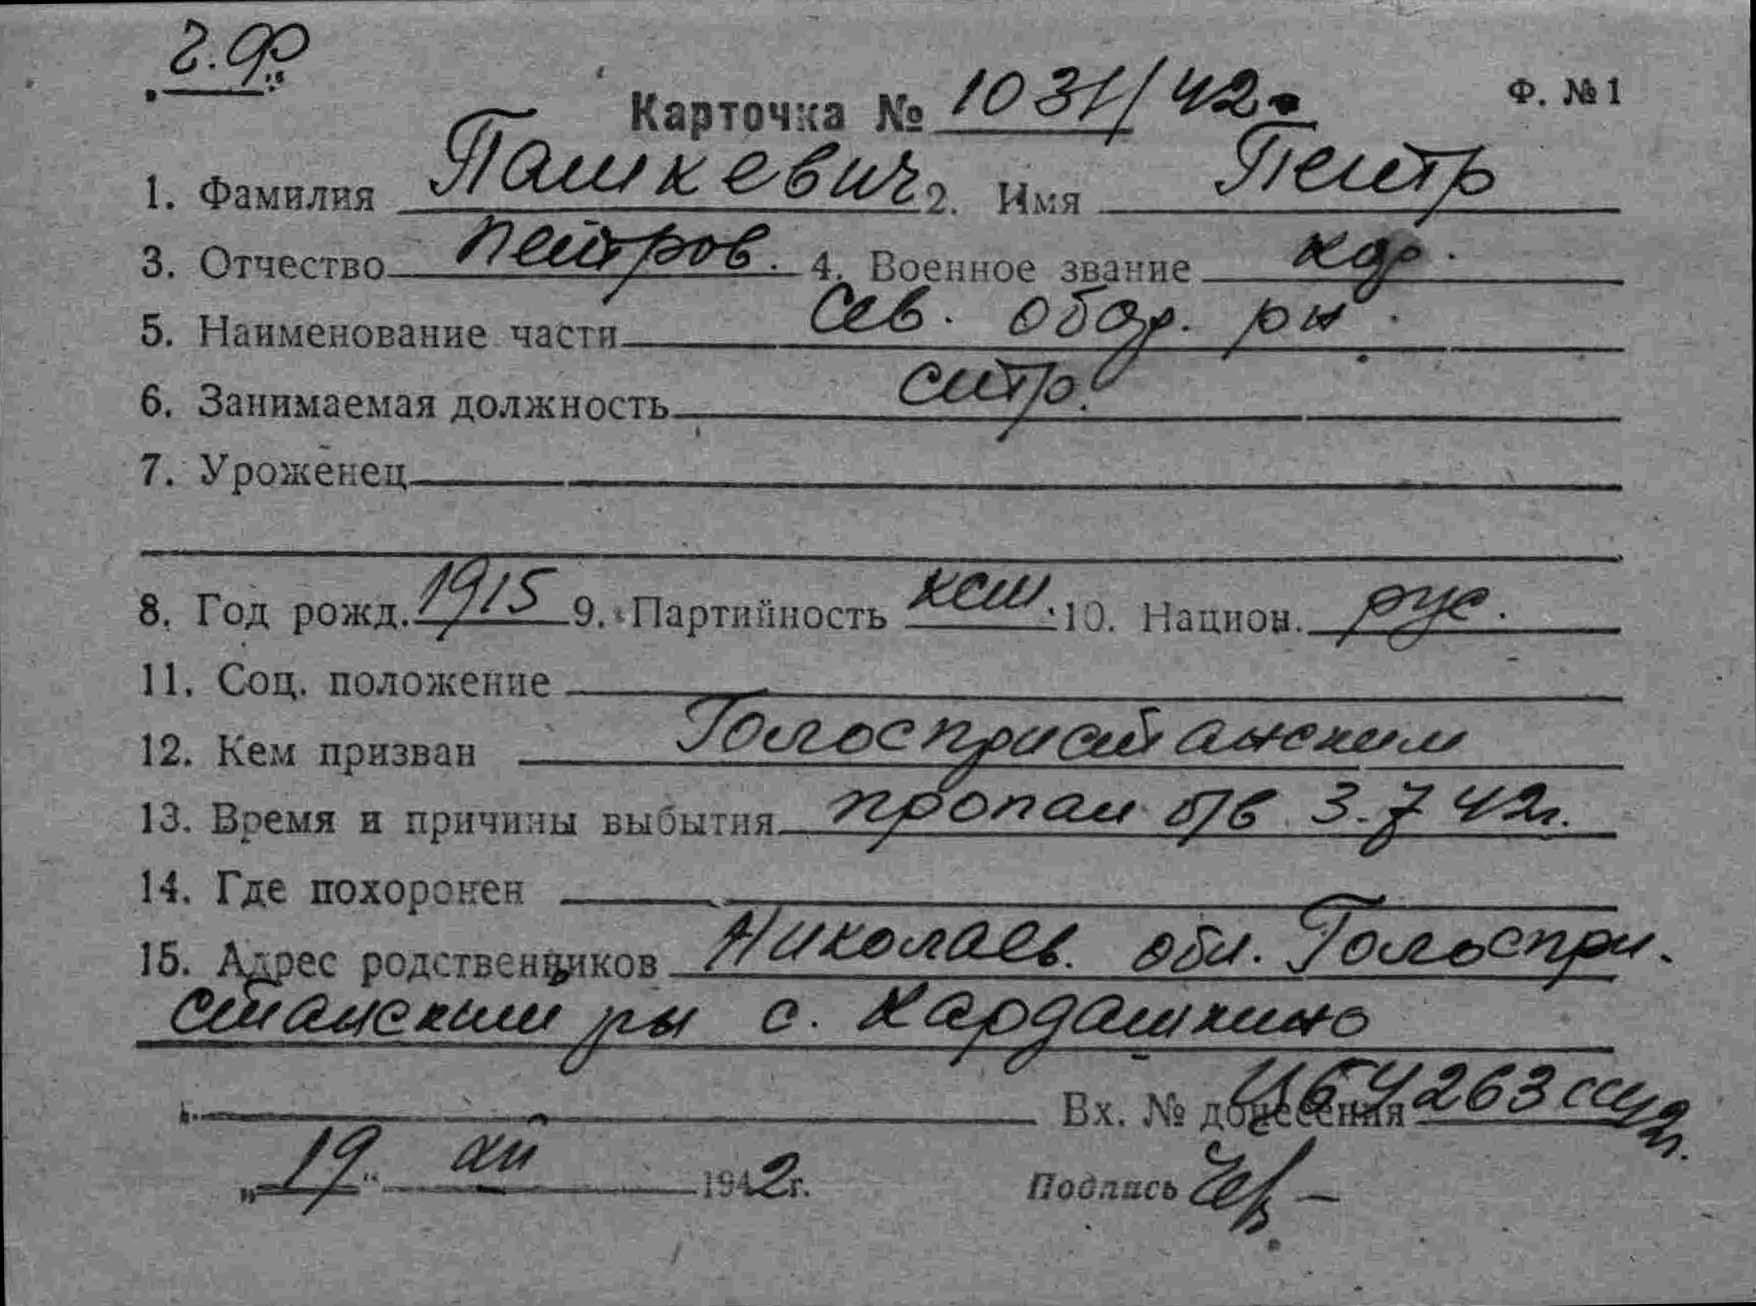 г. Ф.
Карточка № 1031/42. Ф. № 1
1. Фамилия Пашкевич 2. Имя Петр
3. Отчество Петров. 4. Военное звание кр.
5. Наименование части Сев. обор. рн.
6. Занимаемая должность стр.
7. Уроженец
8. Год рожд. 1915 9. Партийность ксм. 10. Национ. рус.
11. Соц. положение
12. Кем призван Голопристанским
13. Время и причины выбытия пропал б/в 3.7 42г.
14. Где похоронен
15. Адрес родственников Николаев. обл. Голоспри-
станский рн с. Кардашкино
Вх. № донесения 263
„19“ 1942г. Подпись